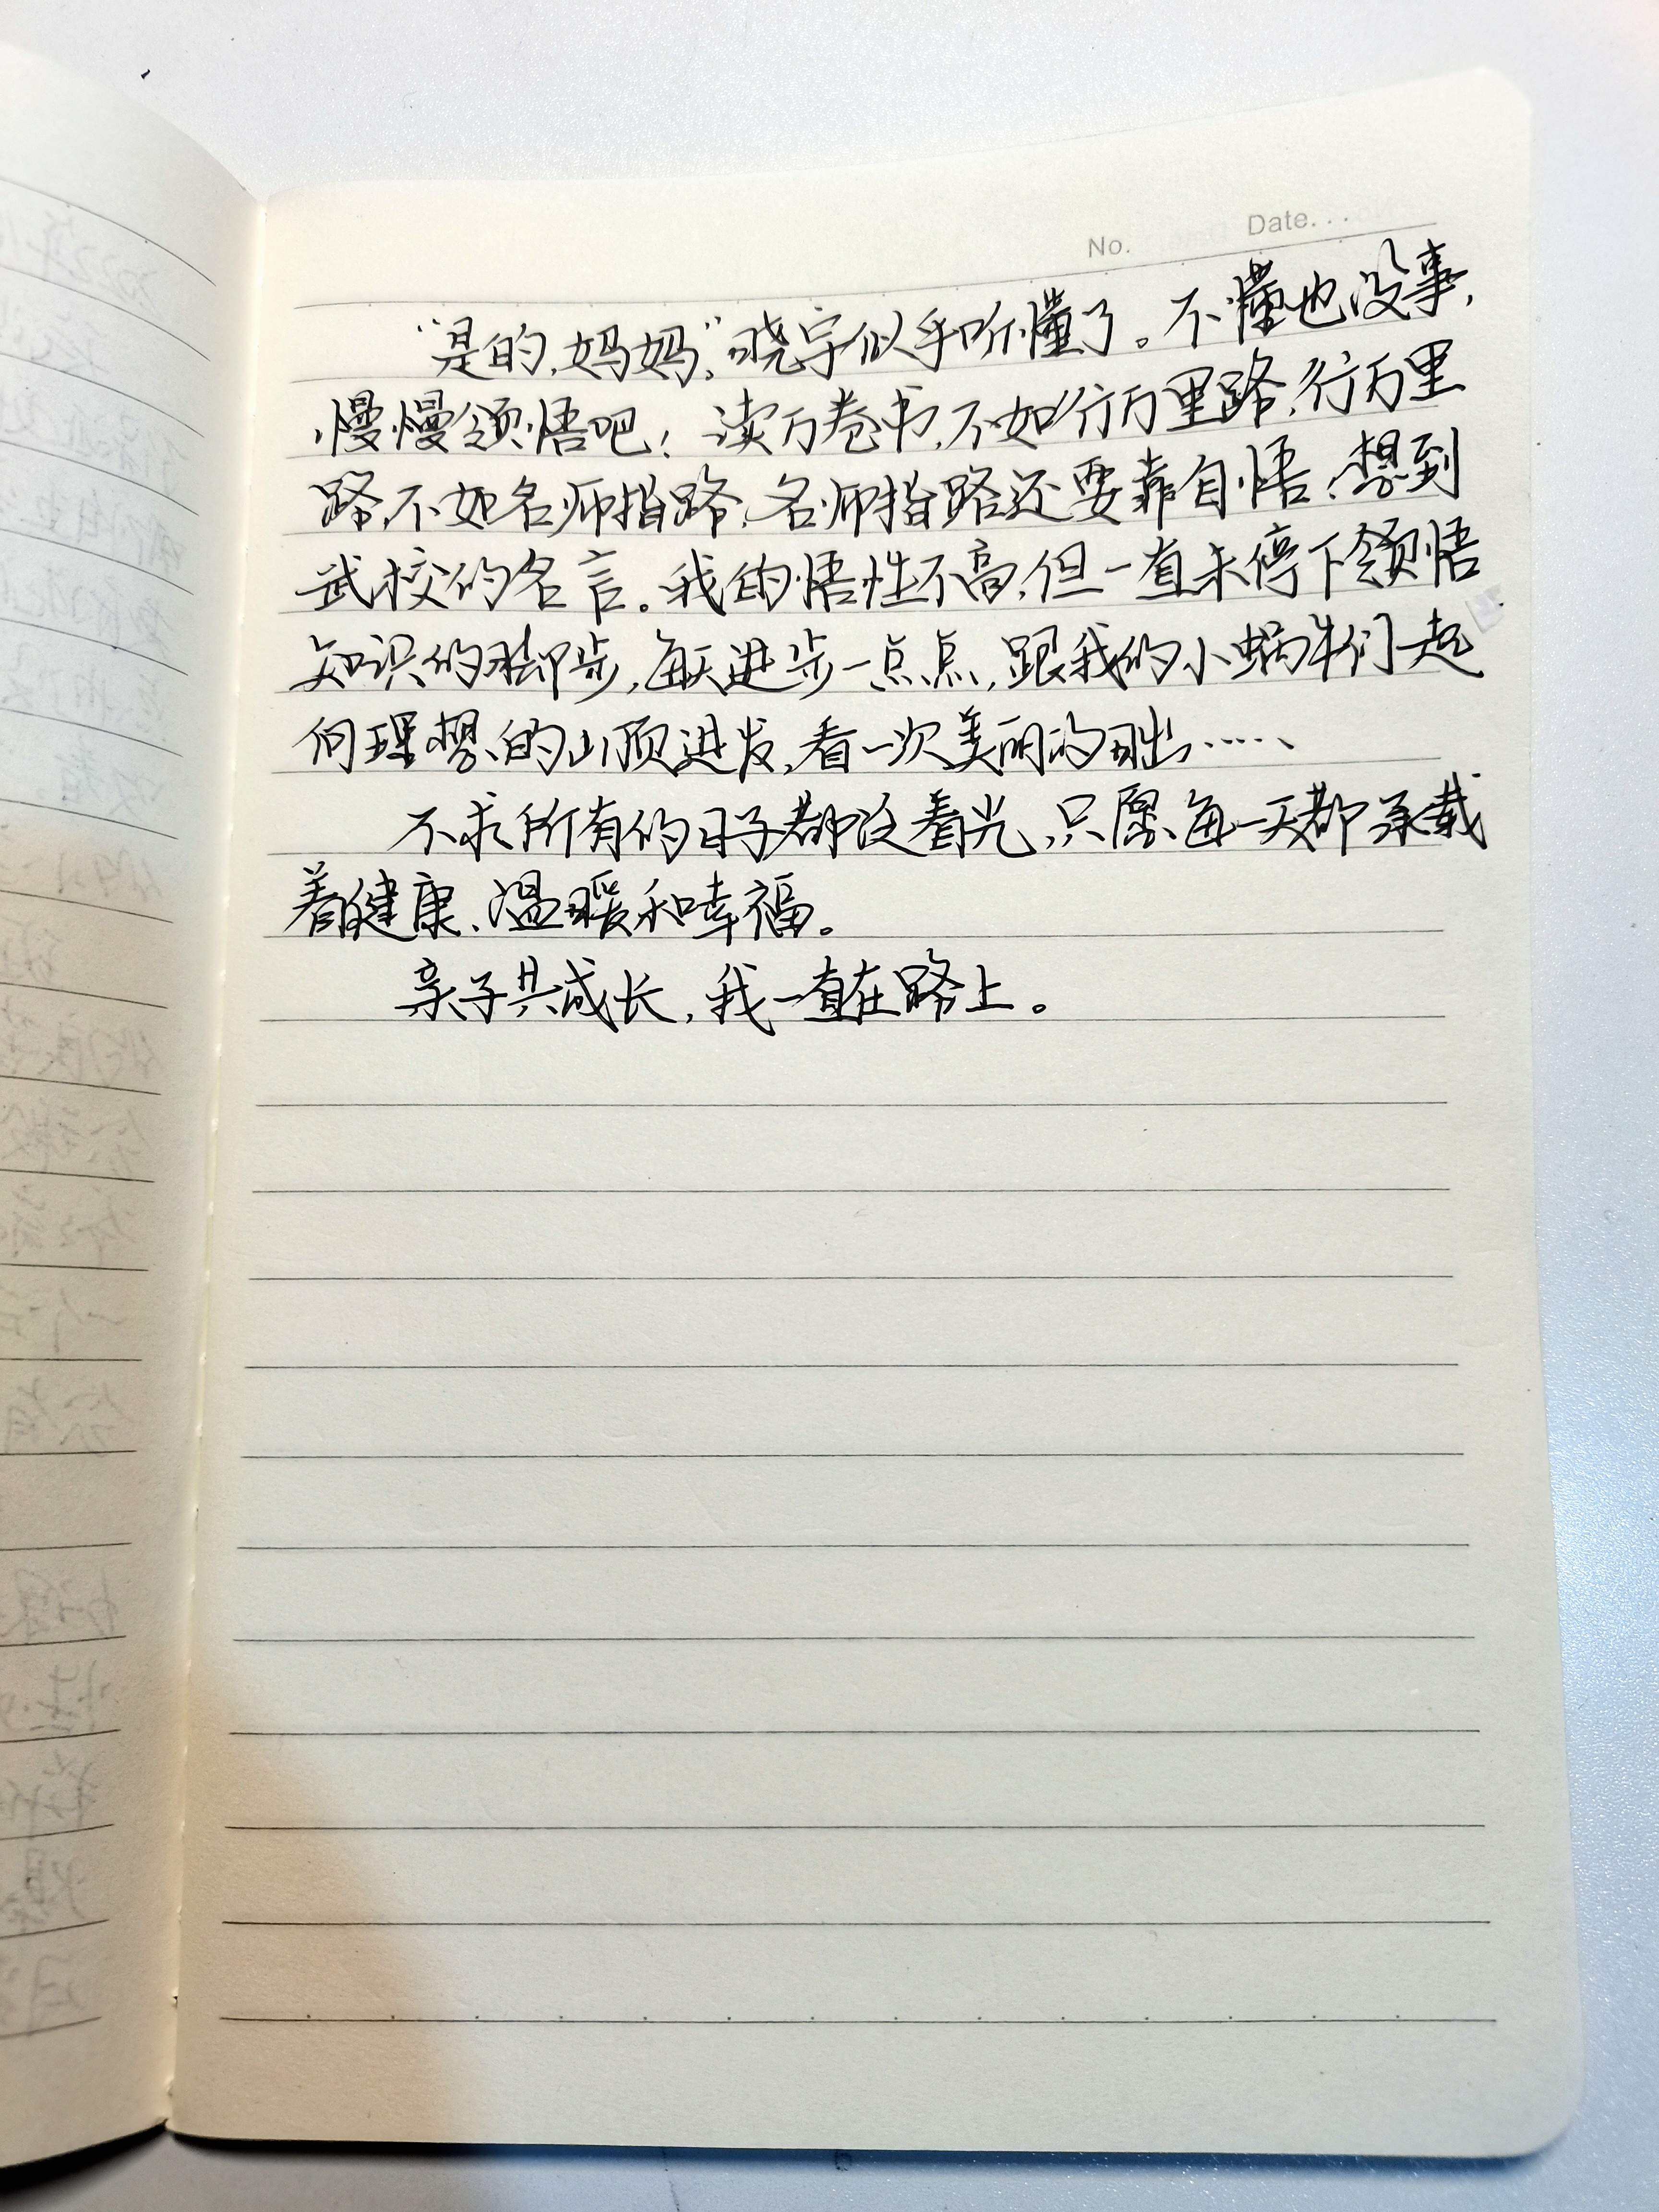 No. Date...
“是的,妈妈。”晓宇似乎听懂了。不懂也没事,
慢慢领悟吧!读万卷书,不如行万里路,行万里
路,不如名师指路,名师指路还要靠自悟,想到
武校的名言。我的悟性不高,但一直未停下领悟
知识的脚步,每天进步一点点,跟我的小蜗牛们一起
向理想的山顶进发,看一次美丽的日出……
不求所有的日子都泛着光,只愿每一天都承载
着健康、温暖和幸福。
亲子共成长,我一直在路上。